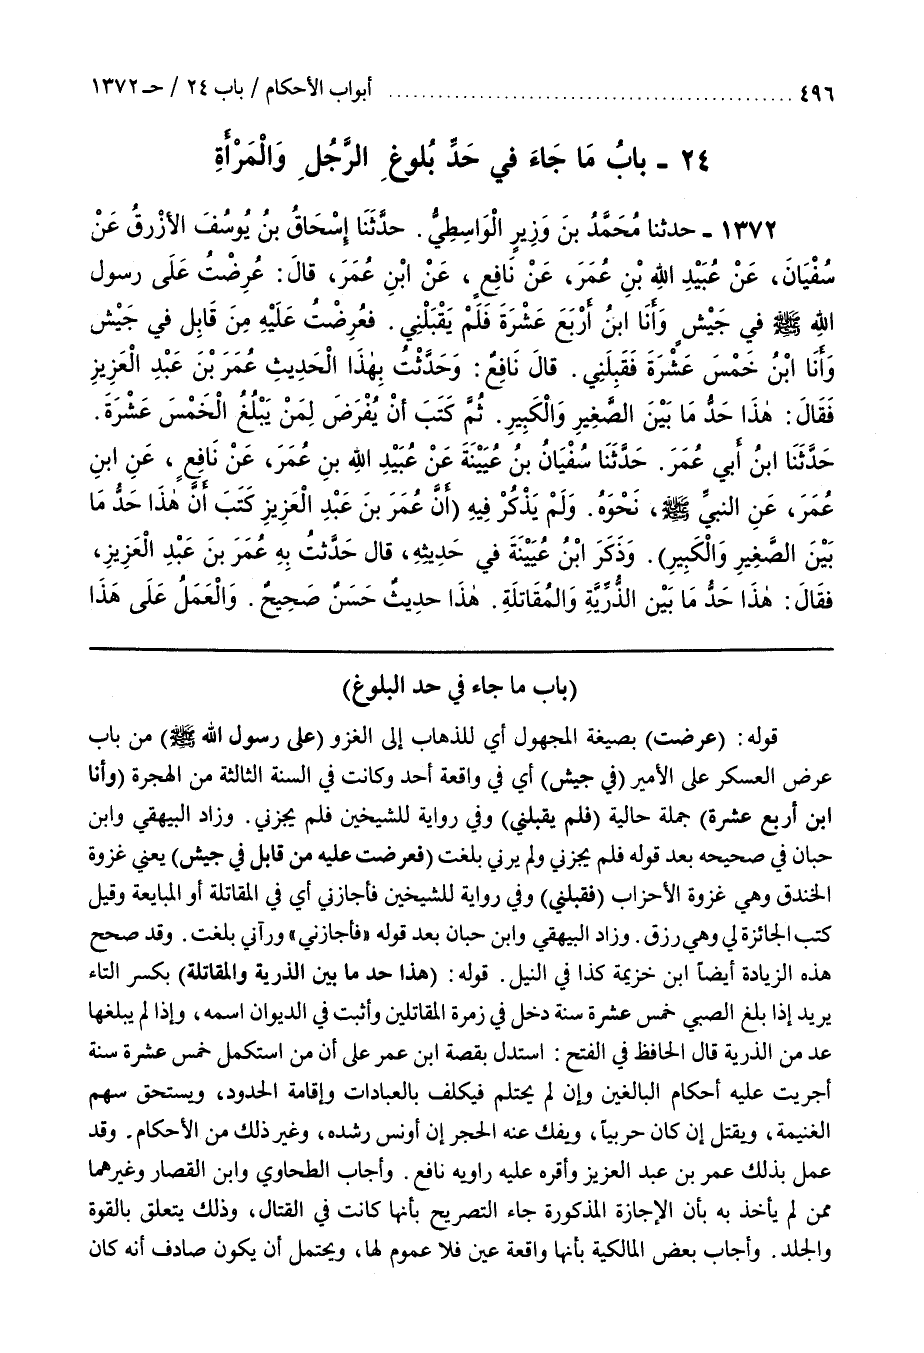 ٤٩٦ ........................................ أبواب الأحكام / باب ٢٤ / حـ ١٣٧٢
٢٤ ـ بابُ مَا جَاءَ في حَدِّ بُلوغِ الرَّجُلِ وَالْمَرْأَةِ
١٣٧٢ ـ حدثنا مُحَمَّدُ بنَ وَزِيرٍ الْوَاسِطِيُّ. حدَّثَنَا إسْحَاقُ بنُ يُوسُفَ الأزْرقُ عَنْ
سُفْيَانَ، عَنْ عُبَيْدِ الله بْنِ عُمَرَ، عَنْ نَافِعٍ، عَنْ ابْنِ عُمَرَ، قالَ: عُرِضْتُ عَلَى رسول
الله ﷺ في جَيْشٍ وَأَنَا ابنُ أَرْبَعَ عَشْرَةَ فَلَمْ يَقْبَلْنِي. فعُرِضْتُ عَلَيْهِ مِنَ قَابِل في جَيْش
وَأَنَا ابْنُ خَمْسَ عَشْرَةَ فَقَبِلَنِي. قالَ نَافِعٌ: وَحَدَّثْتُ بِهٰذَا الْحَدِيثِ عُمَرَ بْنَ عَبْدِ الْعَزِيزِ
فَقَالَ: هٰذَا حَدُّ مَا بَيْنَ الصَّغِيرِ وَالْكَبِيرِ. ثُمَّ كَتَبَ أنْ يُفْرَضَ لِمَنْ يَبْلُغُ الْخَمْسَ عَشْرَةَ.
حَدَّثَنَا ابنُ أبي عُمَرَ. حَدَّثَنَا سُفْيَانُ بنُ عُيَيْنَةَ عَنْ عُبَيْدِ الله بنِ عُمَرَ، عَنْ نَافِعٍ، عَنِ ابنِ
عُمَرَ، عَنِ النبيِّ ﷺ، نَحْوَهُ. وَلَمْ يَذْكُرْ فِيهِ (أنَّ عُمَرَ بنَ عَبْدِ الْعَزِيزِ كَتَبَ أنَّ هٰذَا حَدُّ مَا
بَيْنَ الصَّغِيرِ وَالْكَبِيرِ). وَذَكَرَ ابْنُ عُيَيْنَةَ في حَدِيثِهِ، قال حَدَّثتُ بِهِ عُمَرَ بنَ عَبْدِ الْعَزِيزِ،
فقَالَ: هٰذَا حَدُّ مَا بَيْن الذُّرِّيَّةِ وَالمُقَاتلَةِ. هٰذَا حديثٌ حَسَنٌ صَحِيحٌ. وَالْعَمَلُ عَلَى هَذَا
(باب ما جاء في حد البلوغ)
قوله: (عرضت) بصيغة المجهول أي للذهاب إلى الغزو (على رسول الله ﷺ) من باب
عرض العسكر على الأمير (في جيش) أي في واقعة أحد وكانت في السنة الثالثة من الهجرة (وأنا
ابن أربع عشرة) جملة حالية (فلم يقبلني) وفي رواية للشيخين فلم يجزني. وزاد البيهقي وابن
حبان في صحيحه بعد قوله فلم يجزني ولم يرني بلغت (فعرضت عليه من قابل في جيش) يعني غزوة
الخندق وهي غزوة الأحزاب (فقبلني) وفي رواية للشيخين فأجازني أي في المقاتلة أو المبايعة وقيل
كتب الجائزة لي وهي رزق. وزاد البيهقي وابن حبان بعد قوله «فأجازني» ورآني بلغت. وقد صحح
هذه الزيادة أيضاً ابن خزيمة كذا في النيل. قوله: (هذا حد ما بين الذرية والمقاتلة) بكسر التاء
يريد إذا بلغ الصبي خمس عشرة سنة دخل في زمرة المقاتلين وأثبت في الديوان اسمه، وإذا لم يبلغها
عد من الذرية قال الحافظ في الفتح: استدل بقصة ابن عمر على أن من استكمل خمس عشرة سنة
أجريت عليه أحكام البالغين وإن لم يحتلم فيكلف بالعبادات وإقامة الحدود، ويستحق سهم
الغنيمة، ويقتل إن كان حربياً، ويفك عنه الحجر إن أونس رشده، وغير ذلك من الأحكام. وقد
عمل بذلك عمر بن عبد العزيز وأقره عليه راويه نافع. وأجاب الطحاوي وابن القصار وغيرهما
ممن لم يأخذ به بأن الإجازة المذكورة جاء التصريح بأنها كانت في القتال، وذلك يتعلق بالقوة
والجلد. وأجاب بعض المالكية بأنها واقعة عين فلا عموم لها، ويحتمل أن يكون صادف أنه كان